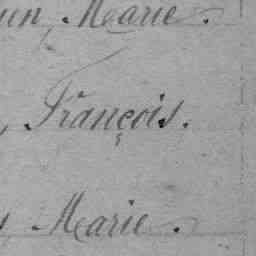 Marie.
François.
Marie.